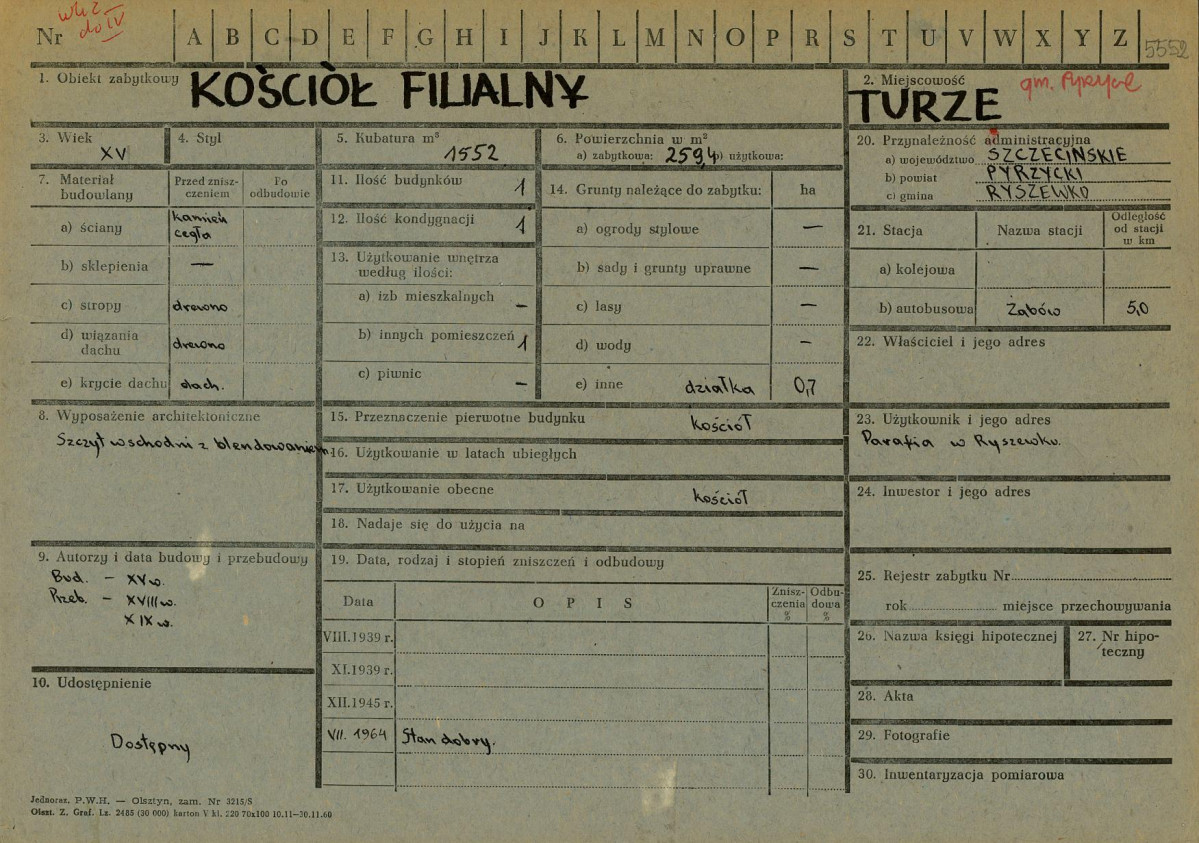 Nr wkl. z do IV A B C D E F G H I J K L M N O P R S T U V W X Y Z 5552
1. Obiekt zabytkowy KOŚCIÓŁ FILIALNY
2. Miejscowość gm. Pyrzyce
TURZE
3. Wiek XV
4. Styl
5. Kubatura m³ 1552
6. Powierzchnia w m²
a) zabytkowa: 259,4 b) użytkowa:
7. Materiał budowlany
Przed zniszczeniem
Po odbudowie
a) ściany kamień cegła
b) sklepienia —
c) stropy drewno
d) wiązania dachu drewno
e) krycie dachu dach.
8. Wyposażenie architektoniczne
Szczyt wschodni z blendowaniem.
9. Autorzy i data budowy i przebudowy
Bud. – XV w.
Przeb. – XVIII w.
XIX w.
10. Udostępnienie
Dostępny
11. Ilość budynków 1
12. Ilość kondygnacji 1
13. Użytkowanie wnętrza według ilości:
a) izb mieszkalnych –
b) innych pomieszczeń 1
c) piwnic –
14. Grunty należące do zabytku: ha
a) ogrody stylowe —
b) sady i grunty uprawne —
c) lasy –
d) wody –
e) inne działka 0,7
15. Przeznaczenie pierwotne budynku kościół
16. Użytkowanie w latach ubiegłych
17. Użytkowanie obecne kościół
18. Nadaje się do użycia na
19. Data, rodzaj i stopień zniszczeń i odbudowy
Data O P I S Zniszczenia % Odbudowa %
VIII.1939 r.
XI.1939 r.
XII.1945 r.
VII. 1964 Stan dobry.
20. Przynależność administracyjna
a) województwo SZCZECIŃSKIE
b) powiat PYRZYCKI
c) gmina RYSZEWKO
21. Stacja Nazwa stacji Odległość od stacji w km
a) kolejowa
b) autobusowa Żabów 5,0
22. Właściciel i jego adres
23. Użytkownik i jego adres
Parafia w Ryszewku.
24. Inwestor i jego adres
25. Rejestr zabytku Nr
rok miejsce przechowywania
26. Nazwa księgi hipotecznej
27. Nr hipoteczny
28. Akta
29. Fotografie
30. Inwentaryzacja pomiarowa
Jednoraz. P.W.H. — Olsztyn, zam. Nr 3215/S
Olszt. Z. Graf. Lz. 2485 (30 000) karton V kl. 220 70x100 10.11—30.11.60